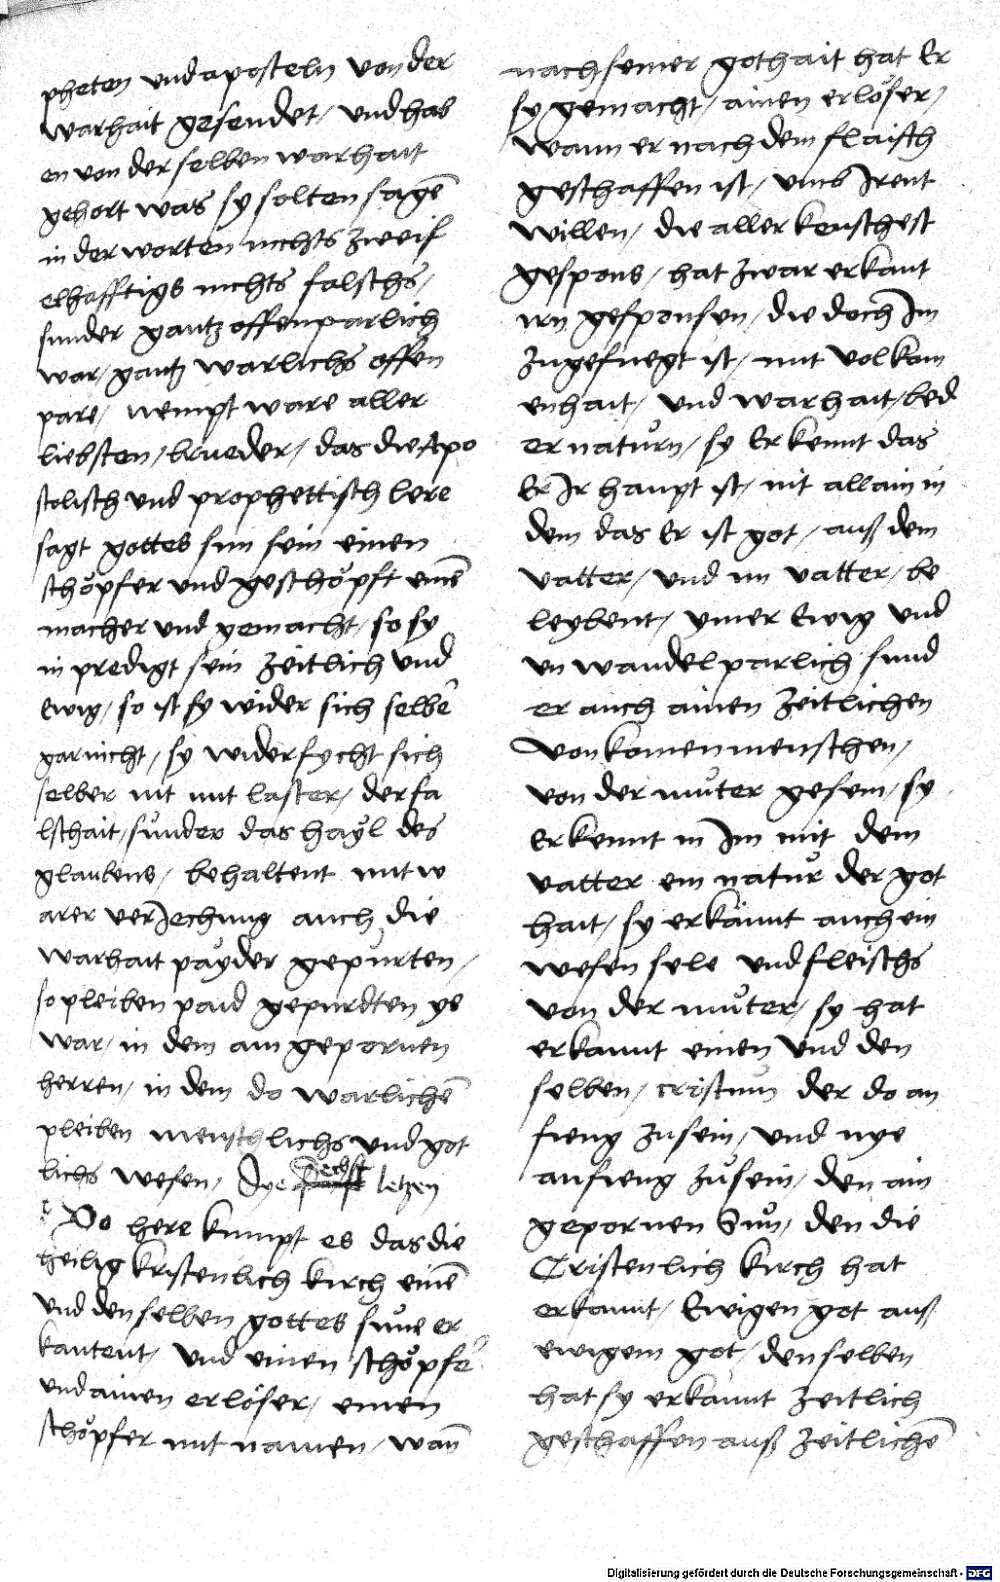 pheten und aposteln von der
warhait gesendet / und hab
en von der selben warhait
gehort was sy solten sagē
in der worten nichts zweif
elhafftigs nichts falschs /
sunder gantz offenparlich
war / gantz warlichs offen
pare / nempt ware aller
liebsten / brueder / das die Apo
stolisch und prophettisch lere
sagt gottes sun sein einen
schöpfer und geschöpft einē
macher und gemacht / so sy
in predigt sein zeitlich und
Ewig / so ist sy wider sich selbē
gar nicht / sy widerfycht sich
selber nit mit laster / der fa
lschait / sünder das hayl des
glaubens / behaltent mit w
arer verIechung auch die
warhait payder gepurten /
so pleiben paid gepurdten ye
war / in dem ain gepornen
herren / in dem do warlichē
pleiben menschlichs und got
lichs wesen / Dye sechst letzen
Do here kumpt es das die
heilig kristenlich kirch einē
und den selben gottes sune er
kantent / und einen schöpfē
und ainen erlöser / einen
schöpfer mit namen / wañ
nach seiner gothait hat Er
sy gemacht / ainen erlöser /
wann er nach dem flaisch
geschaffen ist / umb Irent
willen / die aller keuschest
gespons / hat zwar erkant
irn gesponsen / die doch Im
zugefuegt ist / mit volkom
enhait / und warhait / bed
er naturn / sy Erkennt das
Er Ir haupt ist / nit allain in
dem das Er ist got / auß dem
vatter / und im vatter / be
leybent / ymer Ewig und
un wandelparlich sund
er auch ainen zeitlichen
volkomen menschen /
von der muter gesein / sy
Erkennt in Im mit dem
vatter ein natur der got
hait / sy erkännt auch ein
wesen sele und fleischs
von der muter / sy hat
erkannt einen und den
selben / cristum der do an
fieng zu sein / und nye
anfieng zu sein / den ain
gepornen Sun / den die
Cristenlich kirch hat
erkannt / Ewigen got auß
ewigem got / den selben
hat sy erkannt zeitlich
geschaffen auß zeitlichē
Digitalisierung gefördert durch die Deutsche Forschungsgemeinschaft - DFG